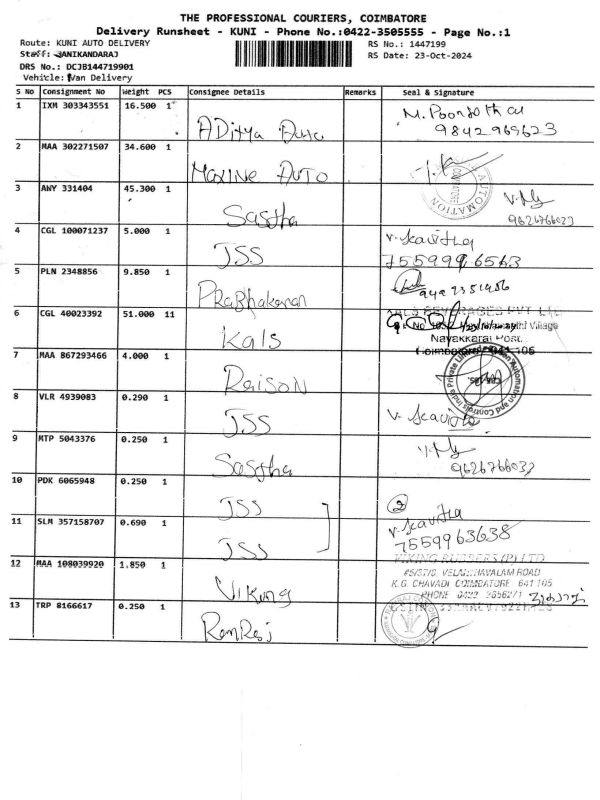 THE PROFESSIONAL COURIERS, COIMBATORE
Delivery Runsheet - KUNI - Phone No.:0422-3505555 - Page No.:1
Route: KUNI AUTO DELIVERY
RS No.: 1447199
RS Date: 23-Oct-2024
DRS No.: DCJB144719901
Vehicle: Van Delivery
S No Consignment No Weight PCS Consignee Details Remarks Seal & Signature
1 IXM 303343551 16.500 1 ADitya Auto
9842969623
2 MAA 302271507 34.600 1 MAXINE AUTO
AUTOMATION
3 ANY 331404 45.300 1 Sastha
9626766033
4 CGL 100071237 5.000 1 JSS
V. Kavitha
5 PLN 2348856 9.850 1 PRaBhakaran
6 CGL 40023392 51.000 11 Kals
Village
Navakkarai Post.
7 MAA 867293466 4.000 1 Raison
8 VLR 4939083 0.290 1 JSS
V. Kavitha
9 MTP 5043376 0.250 1 Sastha
9626766033
10 PDK 6065948 0.250 1 JSS
2
V. Kavitha
11 SLM 357158707 0.690 1 JSS
7559963638
12 MAA 108039920 1.850 1 Viking
VIKING RUBBERS (P) LTD
VELANTHAVALAM ROAD
K.G. CHAVADI COIMBATORE 641 105
PHONE 0422 2656271
13 TRP 8166617 0.250 1 RamRaj